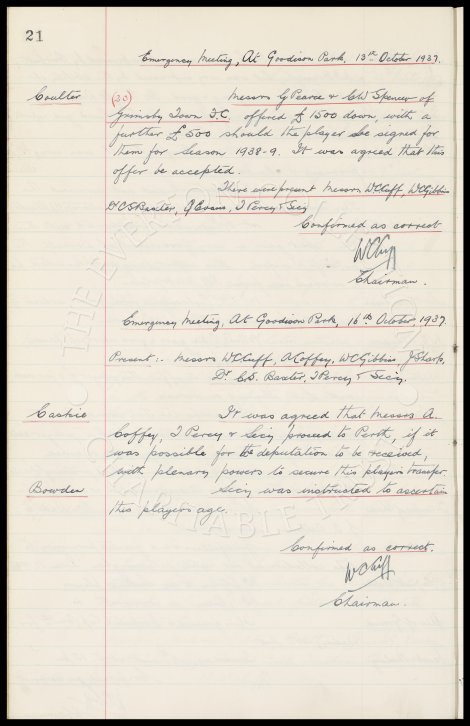 21
Emergency Meeting, At Goodison Park, 13th October 1937.
Coulter
(33)
Messrs G Pearce & C W Spencer of
Grimsby Town F.C offered £1500 down, with a
further £500 should the player be signed for
them for Season 1938-9. It was agreed that this
offer be accepted.
There were present Messrs W C Cuff, W C Gibbins
Dr C S Baxter, Evans, T Percy & Secy
Confirmed as correct
W C Cuff
Chairman.
Emergency Meeting, At Goodison Park, 16th October, 1937.
Present:- Messrs W C Cuff, A Coffey, W C Gibbins, J Sharp,
Dr. C.S. Baxter, T Percy & Secy.
Caskie
It was agreed that Messrs A.
Coffey, T Percy & Secy proceed to Perth, if it
was possible for the deputation to be received,
with plenary powers to secure this players transfer.
Bowden
Secy was instructed to ascertain
this players age.
Confirmed as correct.
W C Cuff
Chairman.
THE EVERTON
CHARITABLE TRUST